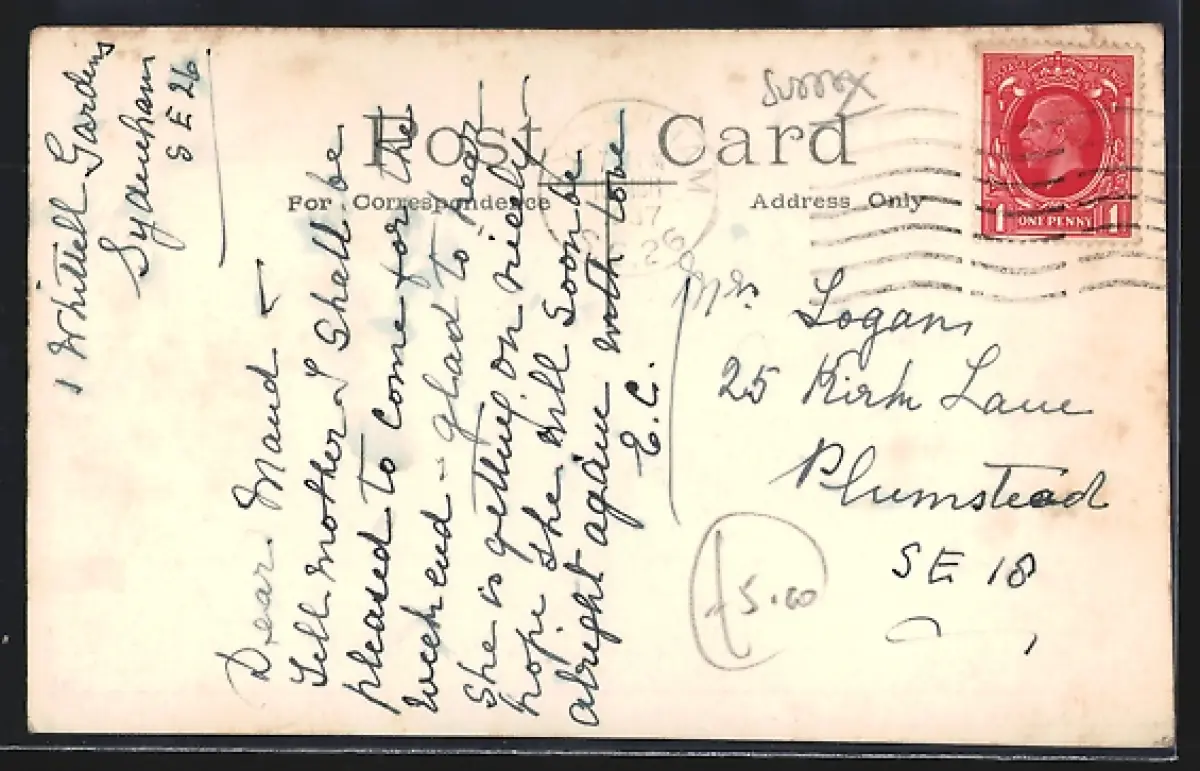 1 Whittell Gardens
Sydenham
S E 26.
Dear Maud –
Tell Mother I Shall be
pleased to come for the
week end – glad to hear
She is getting on nicely
hope she will soon be
alright again with love
E.C.
Post Card
For Correspondence
Address Only
Sussex
ONE PENNY
1 1
Mrs Logan
25 Kirk Lane
Plumstead
SE 18
£5.00